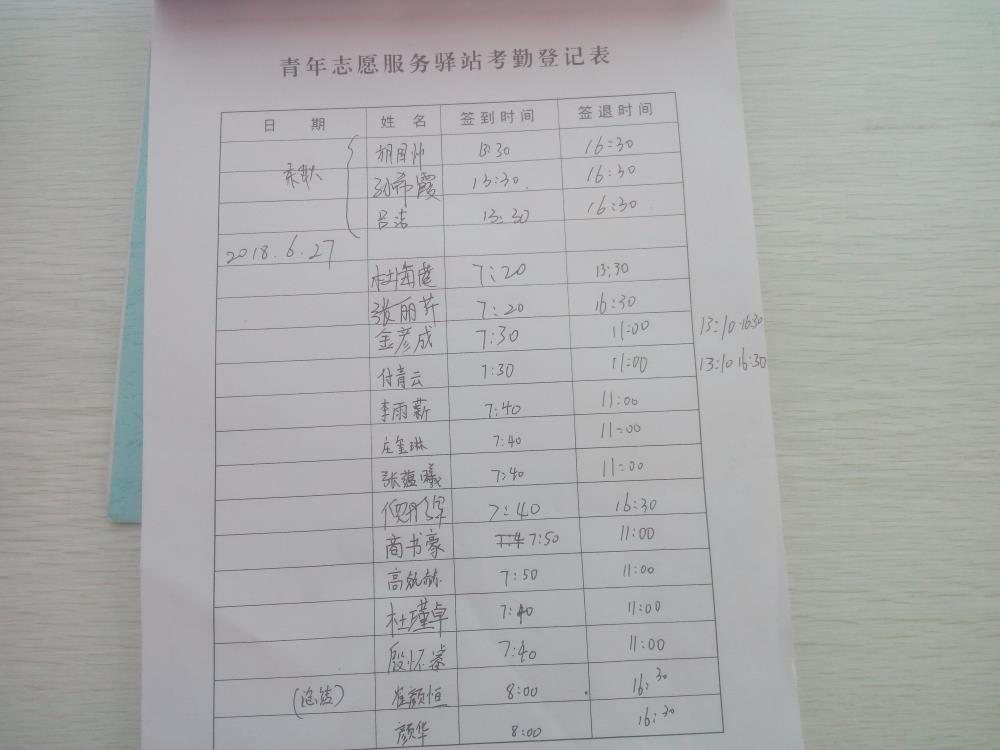 青年志愿服务驿站考勤登记表
日 期 姓 名 签到时间 签退时间
13:30 16:30
孙希霞 13:30 16:30
吕洁 13:30 16:30
2018.6.27
杜海 7:20 13:30
张丽芹 7:20 16:30
金彦成 7:30 11:00 13:10 16:30
付青云 7:30 11:00 13:10 16:30
李雨薪 7:40 11:00
庄玺琳 7:40 11:00
张蕴曦 7:40 11:00
7:40 16:30
商书豪 7:50 11:00
高 赫 7:50 11:00
杜瑾卓 7:40 11:00
殷怀 7:40 11:00
(总结) 崔颜恒 8:00 16:30
颜华 8:00 16:30